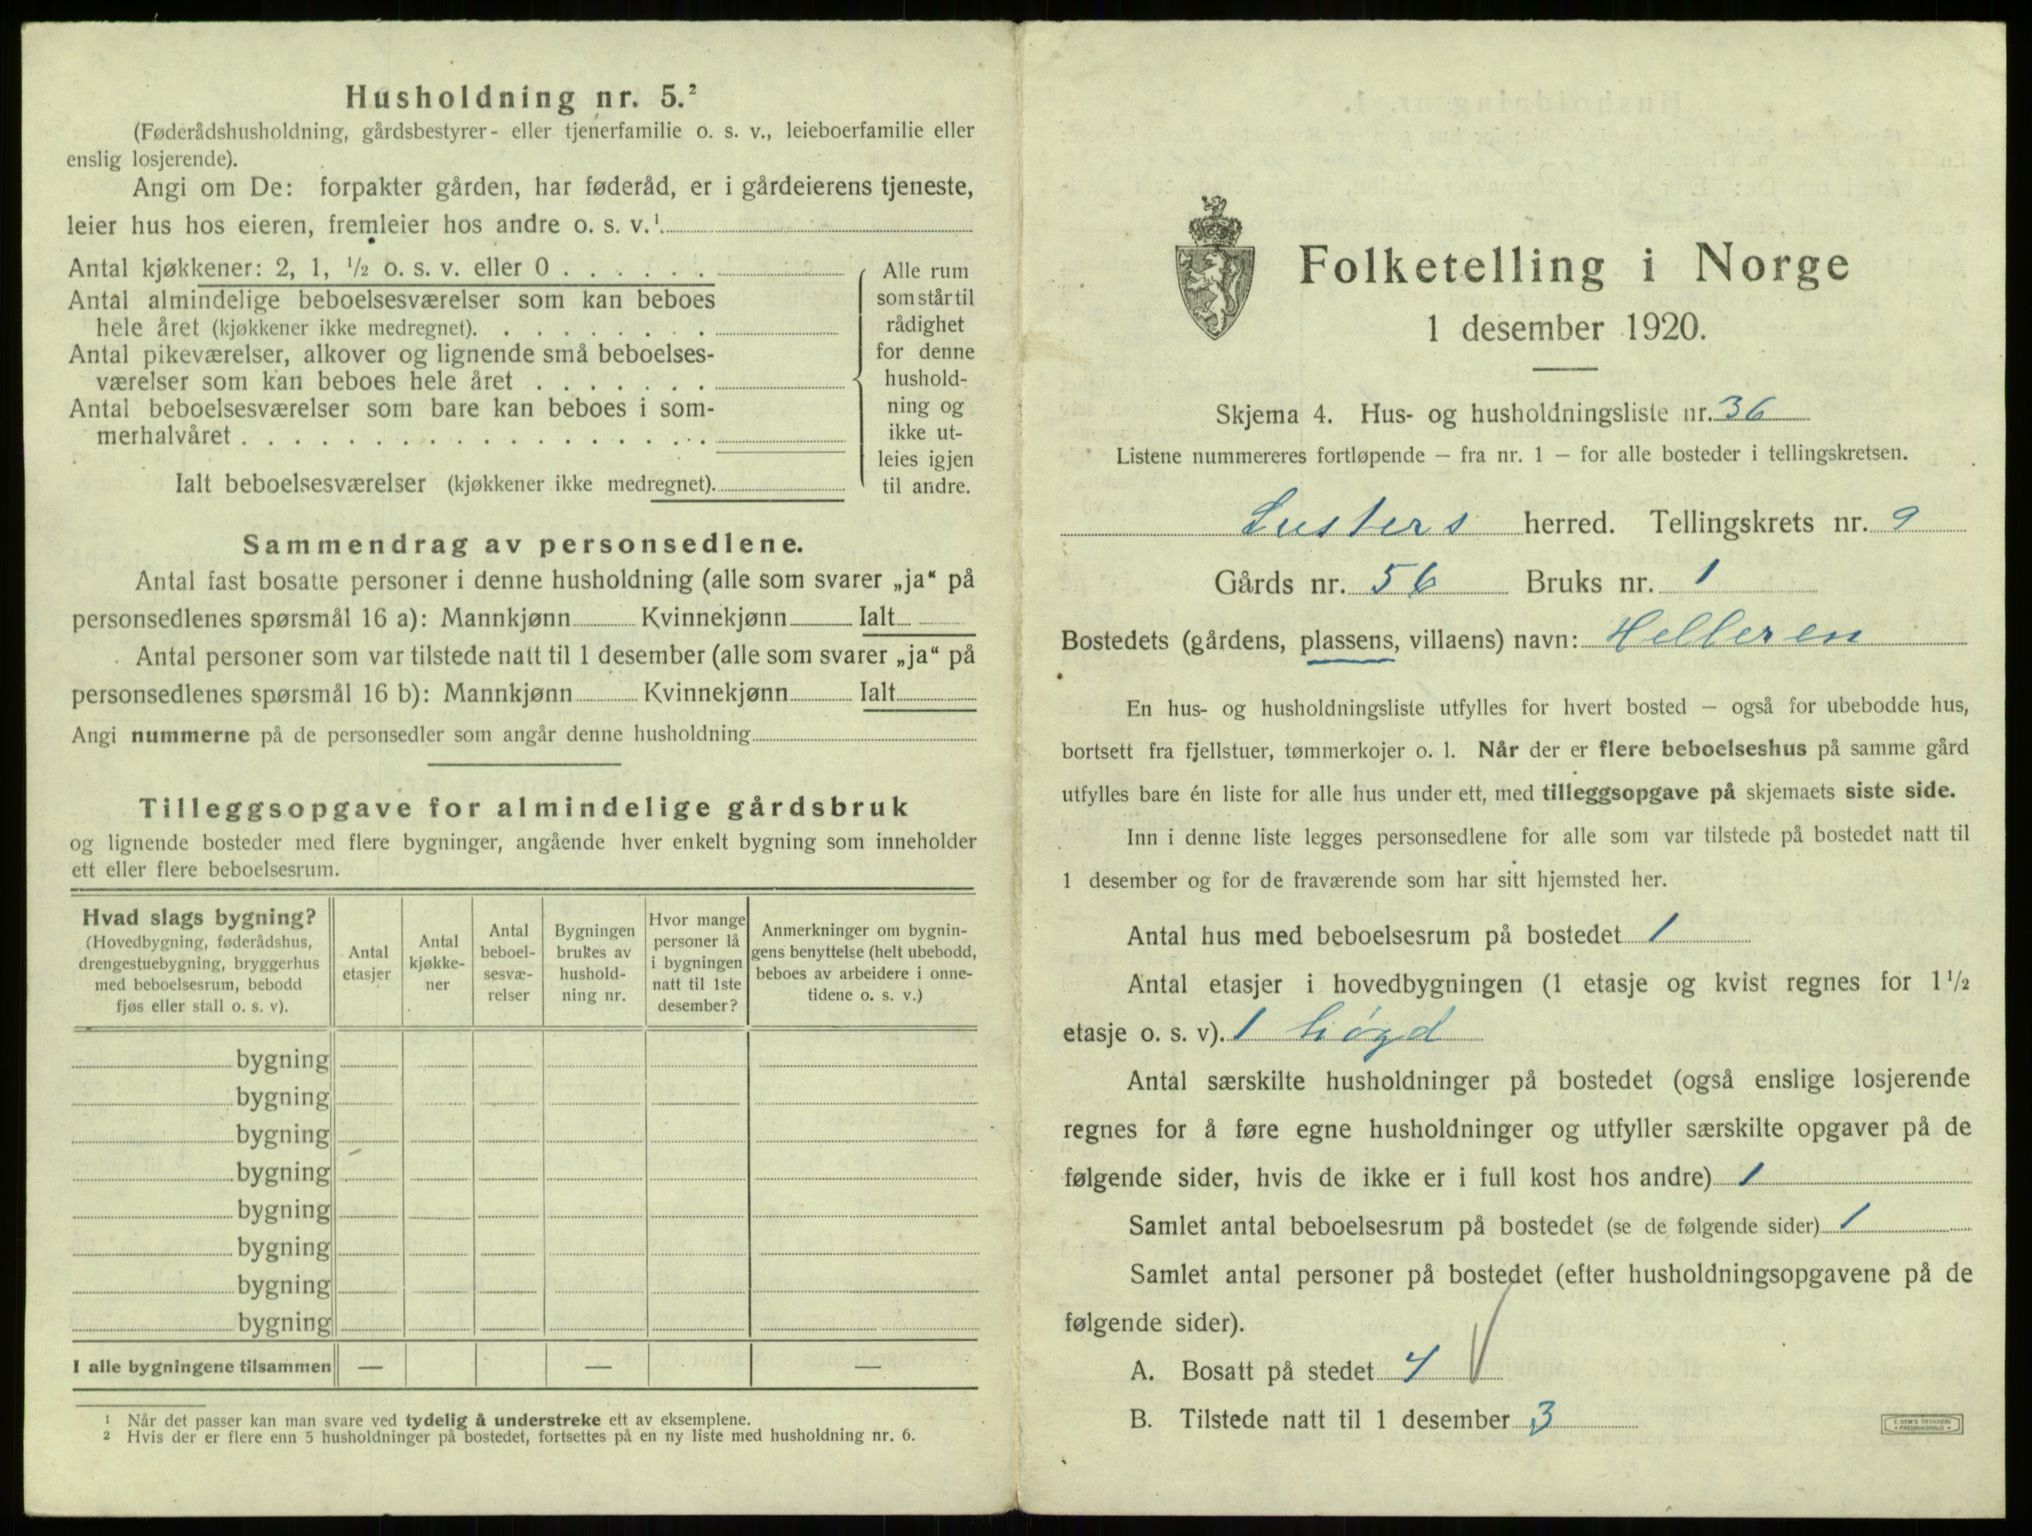 Husholdning nr. 5.²
(Føderådshusholdning, gårdsbestyrer- eller tjenerfamilie o. s. v., leieboerfamilie eller
enslig losjerende).
Angi om De: forpakter gården, har føderåd, er i gårdeierens tjeneste,
leier hus hos eieren, fremleier hos andre o. s. v.¹
Antal kjøkkener: 2, 1, ½ o. s. v. eller 0 . . . . . .
Antal almindelige beboelsesværelser som kan beboes
hele året (kjøkkener ikke medregnet). . . . . . . . .
Antal pikeværelser, alkover og lignende små beboelses-
værelser som kan beboes hele året . . . . . . .
Antal beboelsesværelser som bare kan beboes i som-
merhalvåret . . . . . . . . . . . . . . . . . .
Ialt beboelsesværelser (kjøkkener ikke medregnet).
Alle rum
som står til
rådighet
for denne
hushold-
ning og
ikke ut-
leies igjen
til andre.
Sammendrag av personsedlene.
Antal fast bosatte personer i denne husholdning (alle som svarer „ja“ på
personsedlenes spørsmål 16 a): Mannkjønn Kvinnekjønn Ialt
Antal personer som var tilstede natt til 1 desember (alle som svarer „ja“ på
personsedlenes spørsmål 16 b): Mannkjønn Kvinnekjønn Ialt
Angi nummerne på de personsedler som angår denne husholdning
Tilleggsopgave for almindelige gårdsbruk
og lignende bosteder med flere bygninger, angående hver enkelt bygning som inneholder
ett eller flere beboelsesrum.
Hvad slags bygning?
(Hovedbygning, føderådshus,
drengestuebygning, bryggerhus
med beboelsesrum, bebodd
fjøs eller stall o. s. v).
Antal
etasjer
Antal
kjøkke-
ner
Antal
beboel-
sesvæ-
relser
Bygningen
brukes av
hushold-
ning nr.
Hvor mange
personer lå
i bygningen
natt til 1ste
desember?
Anmerkninger om bygnin-
gens benyttelse (helt ubebodd,
beboes av arbeidere i onne-
tidene o. s. v.)
bygning
bygning
bygning
bygning
bygning
bygning
bygning
bygning
I alle bygningene tilsammen — — —
1 Når det passer kan man svare ved tydelig å understreke ett av eksemplene.
2 Hvis der er flere enn 5 husholdninger på bostedet, fortsettes på en ny liste med husholdning nr. 6.
Folketelling i Norge
1 desember 1920.
Skjema 4. Hus- og husholdningsliste nr. 36
Listene nummereres fortløpende – fra nr. 1 – for alle bosteder i tellingskretsen.
Lusters herred. Tellingskrets nr. 9
Gårds nr. 56 Bruks nr. 1
Bostedets (gårdens, plassens, villaens) navn: Helleren
En hus- og husholdningsliste utfylles for hvert bosted – også for ubebodde hus,
bortsett fra fjellstuer, tømmerkojer o. l. Når der er flere beboelseshus på samme gård
utfylles bare én liste for alle hus under ett, med tilleggsopgave på skjemaets siste side.
Inn i denne liste legges personsedlene for alle som var tilstede på bostedet natt til
1 desember og for de fraværende som har sitt hjemsted her.
Antal hus med beboelsesrum på bostedet 1
Antal etasjer i hovedbygningen (1 etasje og kvist regnes for 1½
etasje o. s. v). 1 høgd
Antal særskilte husholdninger på bostedet (også enslige losjerende
regnes for å føre egne husholdninger og utfyller særskilte opgaver på de
følgende sider, hvis de ikke er i full kost hos andre) 1
Samlet antal beboelsesrum på bostedet (se de følgende sider) 1
Samlet antal personer på bostedet (efter husholdningsopgavene på de
følgende sider).
A. Bosatt på stedet 4
B. Tilstede natt til 1 desember 3